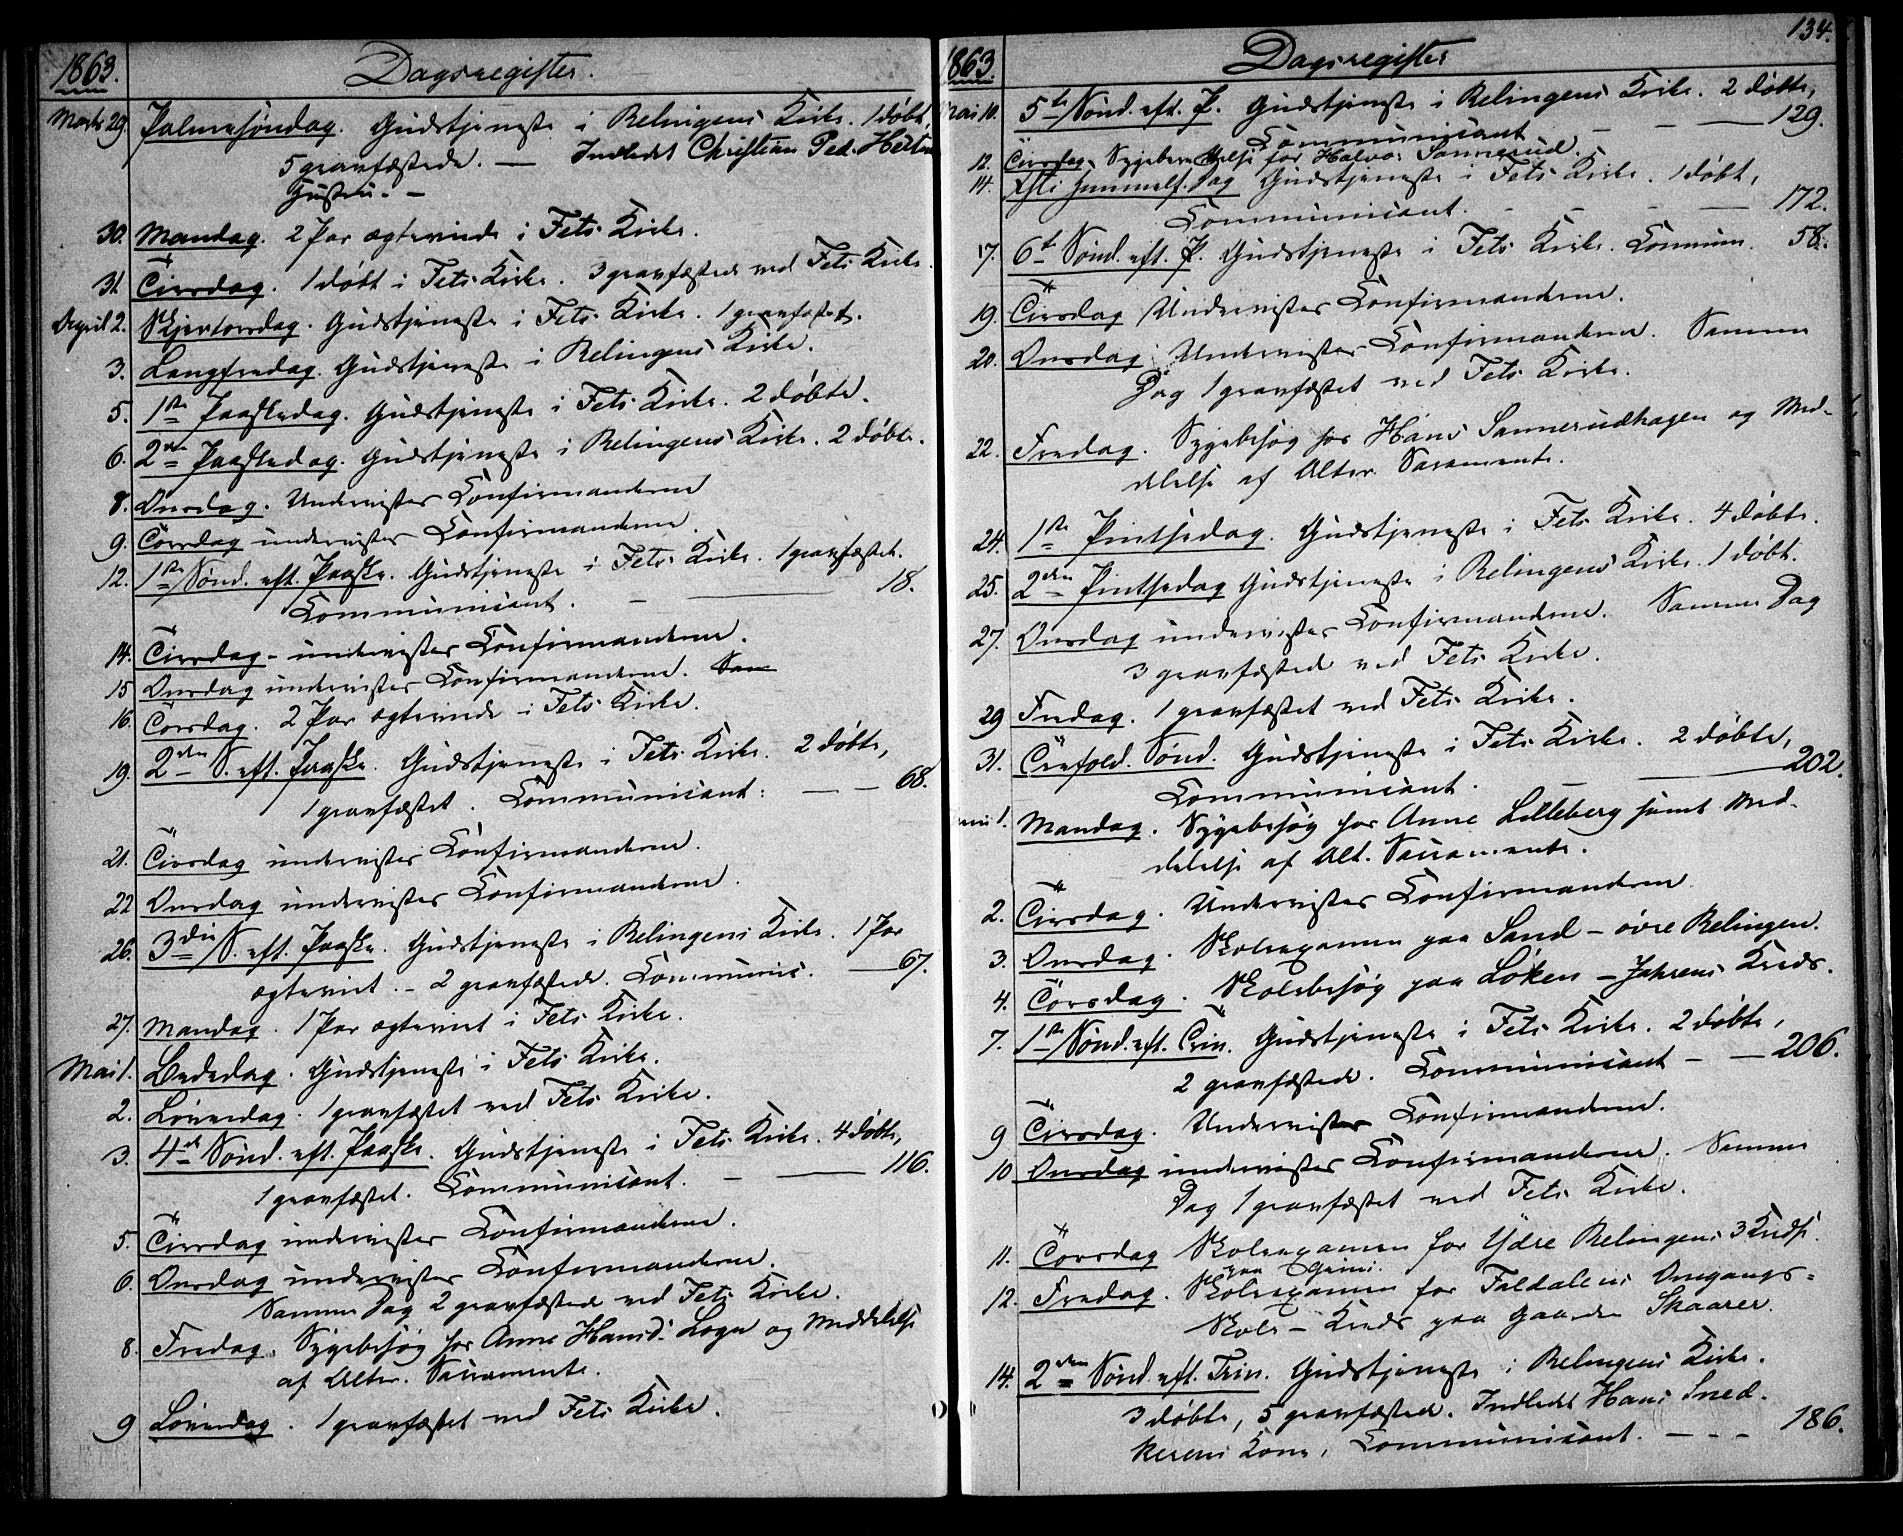 1863. Dagsregister.
Marts 29. Palmesöndag. Gudstjeneste i Relingens Kirke. 1 döbt,
5 gravfæstede. — Indledet Christian Ped. 
Hustru. —
30. Mandag. 2 Par ægteviede i Fets Kirke.
31. Tirsdag. 1 döbt i Fets Kirke. 3 gravfæstede ved Fets Kirke.
April 2. Skjertorsdag. Gudstjeneste i Fets Kirke. 1 gravfæstet.
3. Langfredag. Gudstjeneste i Relingens Kirke.
5. 1ste Paaskedag. Gudstjeneste i Fets Kirke. 2 döbte.
6. 2den Paaskedag. Gudstjeneste i Relingens Kirke. 2 döbte.
8. Onsdag. Undervistes Confirmanderne
9. Torsdag undervistes Confirmanderne.
12. 1ste Sönd. eft. Paaske. Gudstjeneste i Fets Kirke. 1 gravfæstet.
Communicant. — — 18.
14. Tirsdag - undervistes Confirmanderne.
15 Onsdag undervistes Confirmanderne. Sam
16. Torsdag. 2 Par ægteviede i Fets Kirke.
19. 2den S. eft. Paaske. Gudstjeneste i Fets Kirke. 2 döbte,
1 gravfæstet. Communicant: — — 68.
21. Tirsdag undervistes Confirmanderne.
22 Onsdag undervistes Confirmanderne.
26. 3die S. eft. Paaske. Gudstjeneste i Relingens Kirke. 1 Par
ægteviet. - 2 gravfæstede. Communic. — 67.
27. Mandag. 1 Par ægteviet i Fets Kirke.
Mai 1. Bededag. Gudstjeneste i Fets Kirke.
2. Löverdag. 1 gravfæstet ved Fets Kirke.
3. 4de Sönd. eft. Paaske. Gudstjeneste i Fets Kirke. 4 döbte,
1 gravfæstet. Communicant. — — 116.
5. Tirsdag undervistes Confirmanderne.
6. Onsdag undervistes Confirmanderne.
Samme Dag 2 gravfæstede ved Fets Kirke.
8. Fredag. Sygebesög hos Anne Hansd. og Meddelelse
af Alter. Sacramente.
9 Löverdag. 1 gravfæstet ved Fets Kirke.
134.
1863. Dagsregister
Mai 10. 5te Sönd. eft. P. Gudstjeneste i Relingens Kirke. 2 döbte,
Communicant — — 129.
12. Tirsdag. for Halvor Sannerud.
14. Chr. Himmelf. Dag Gudstjeneste i Fets Kirke. 1 döbt,
Communicant. - - - — 172.
17. 6te Sönd. eft. P. Gudstjeneste i Fets Kirke. Commun. 58.
19. Tirsdag Undervistes Confirmanderne.
20. Onsdag Undervistes Confirmanderne. Samme
Dag 1 gravfæstet ved Fets Kirke.
22. Fredag. Sygebesög hos Hans Sannerudhagen og Med-
delelse af Alter. Sacramente.
24. 1ste Pintsedag. Gudstjeneste i Fets Kirke. 4 döbte.
25. 2den Pintsedag Gudstjeneste i Relingens Kirke. 1 döbt.
27. Onsdag undervistes Confirmanderne. Samme Dag
3 gravfæstede ved Fets Kirke.
29 Fredag. 1 gravfæstet ved Fets Kirke.
31. Trefold. Sönd. Gudstjeneste i Fets Kirke. 2 döbte,
Communicant. — — 202.
1. Mandag. Sygebesög hos Anne Lilleberg samt Med-
delelse af Alt. Sacramente.
2. Tirsdag. Undervistes Confirmanderne.
3. Onsdag. Skolexamen paa Sand - övre Relingen.
4. Torsdag. Skolebesög paa Löken - Jahrens Kreds.
7. 1ste Sönd. eft. Trin. Gudstjeneste i Fets Kirke. 2 döbte,
2 gravfæstede. Communicant - — 206.
9 Tirsdag. Undervistes Confirmanderne.
10 Onsdag undervistes Confirmanderne. Samme
Dag 1 gravfæstet ved Fets Kirke.
11. Torsdag Skolexamen for Ydre Relingens 3 Kredse
paa Grini.
12. Fredag. Skolexamen for Faldalens Omgangs-
Skole - Kreds paa Gaarden Skaarer.
14. 2den Sönd. eft. Trin. Gudstjeneste i Relingens Kirke.
3 döbte, 5 gravfæstede. Indledet Hans Sned-
kerens Kone, Communicant. - - - 186.